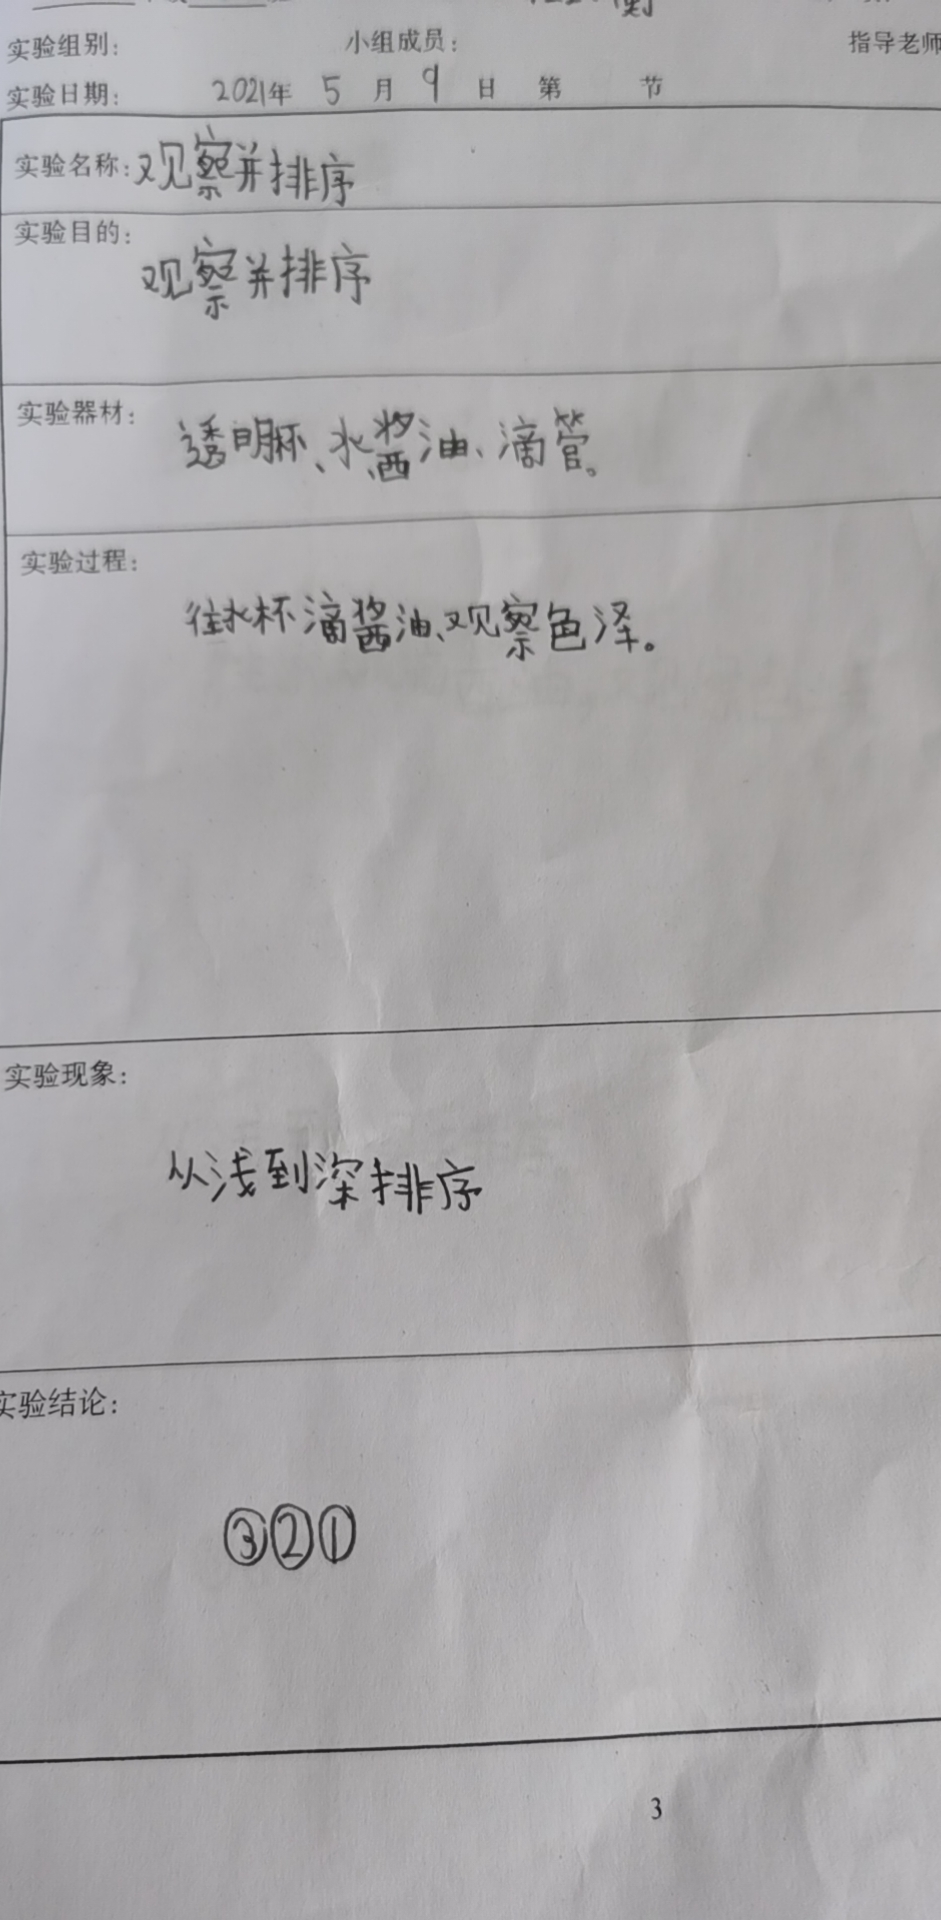 实验组别： 小组成员： 指导老师
实验日期： 2021年 5 月 9 日 第 节
实验名称：观察并排序
实验目的：
观察并排序
实验器材：
透明杯、水、酱油、滴管。
实验过程：
往水杯滴酱油、观察色泽。
实验现象：
从浅到深排序
实验结论：
③②①
3